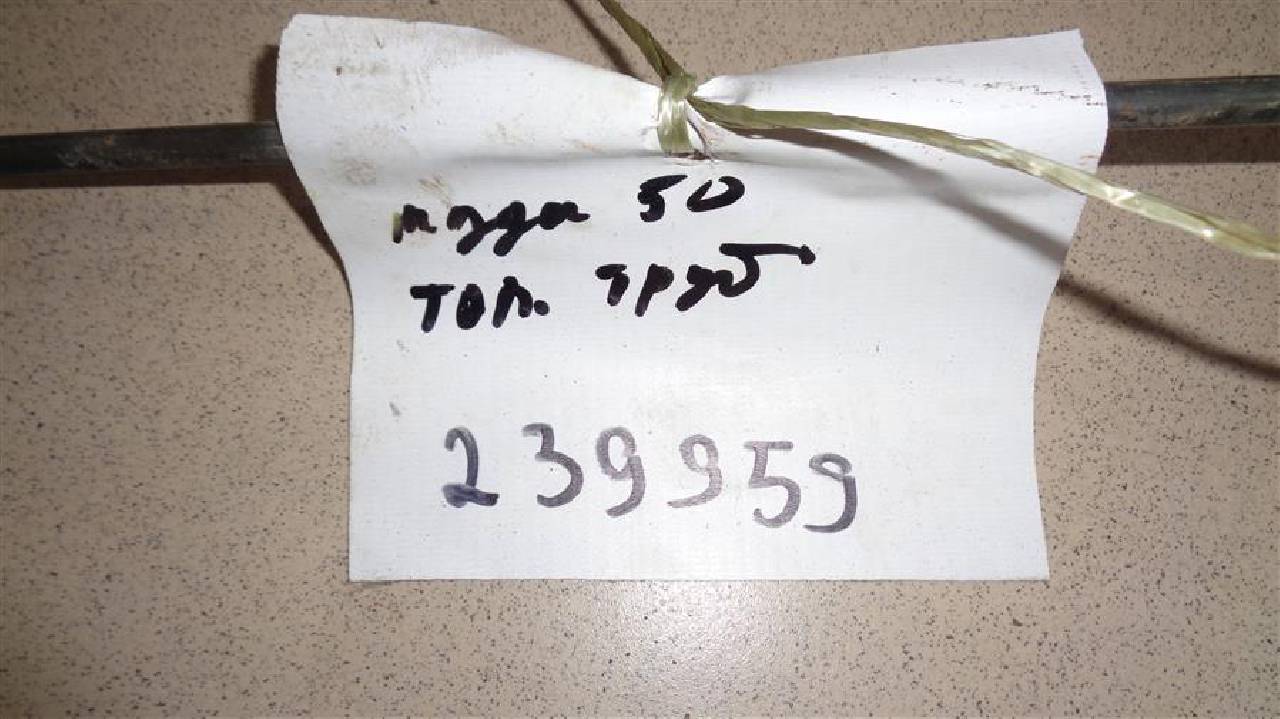 мудан 50
топ. труб
239959